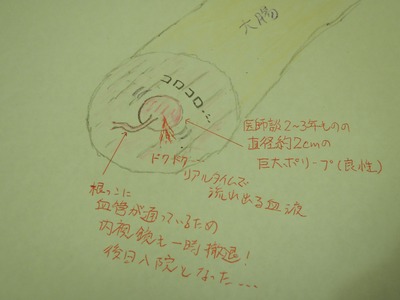 大腸
コロコロ…
医師談2~3年ものの
直径約2cmの
巨大ポリープ(良性)
ドクドク…
リアルタイムで
流れ出る血液
根っこに
血管が通っているため
内視鏡も一時撤退!
後日入院となった…